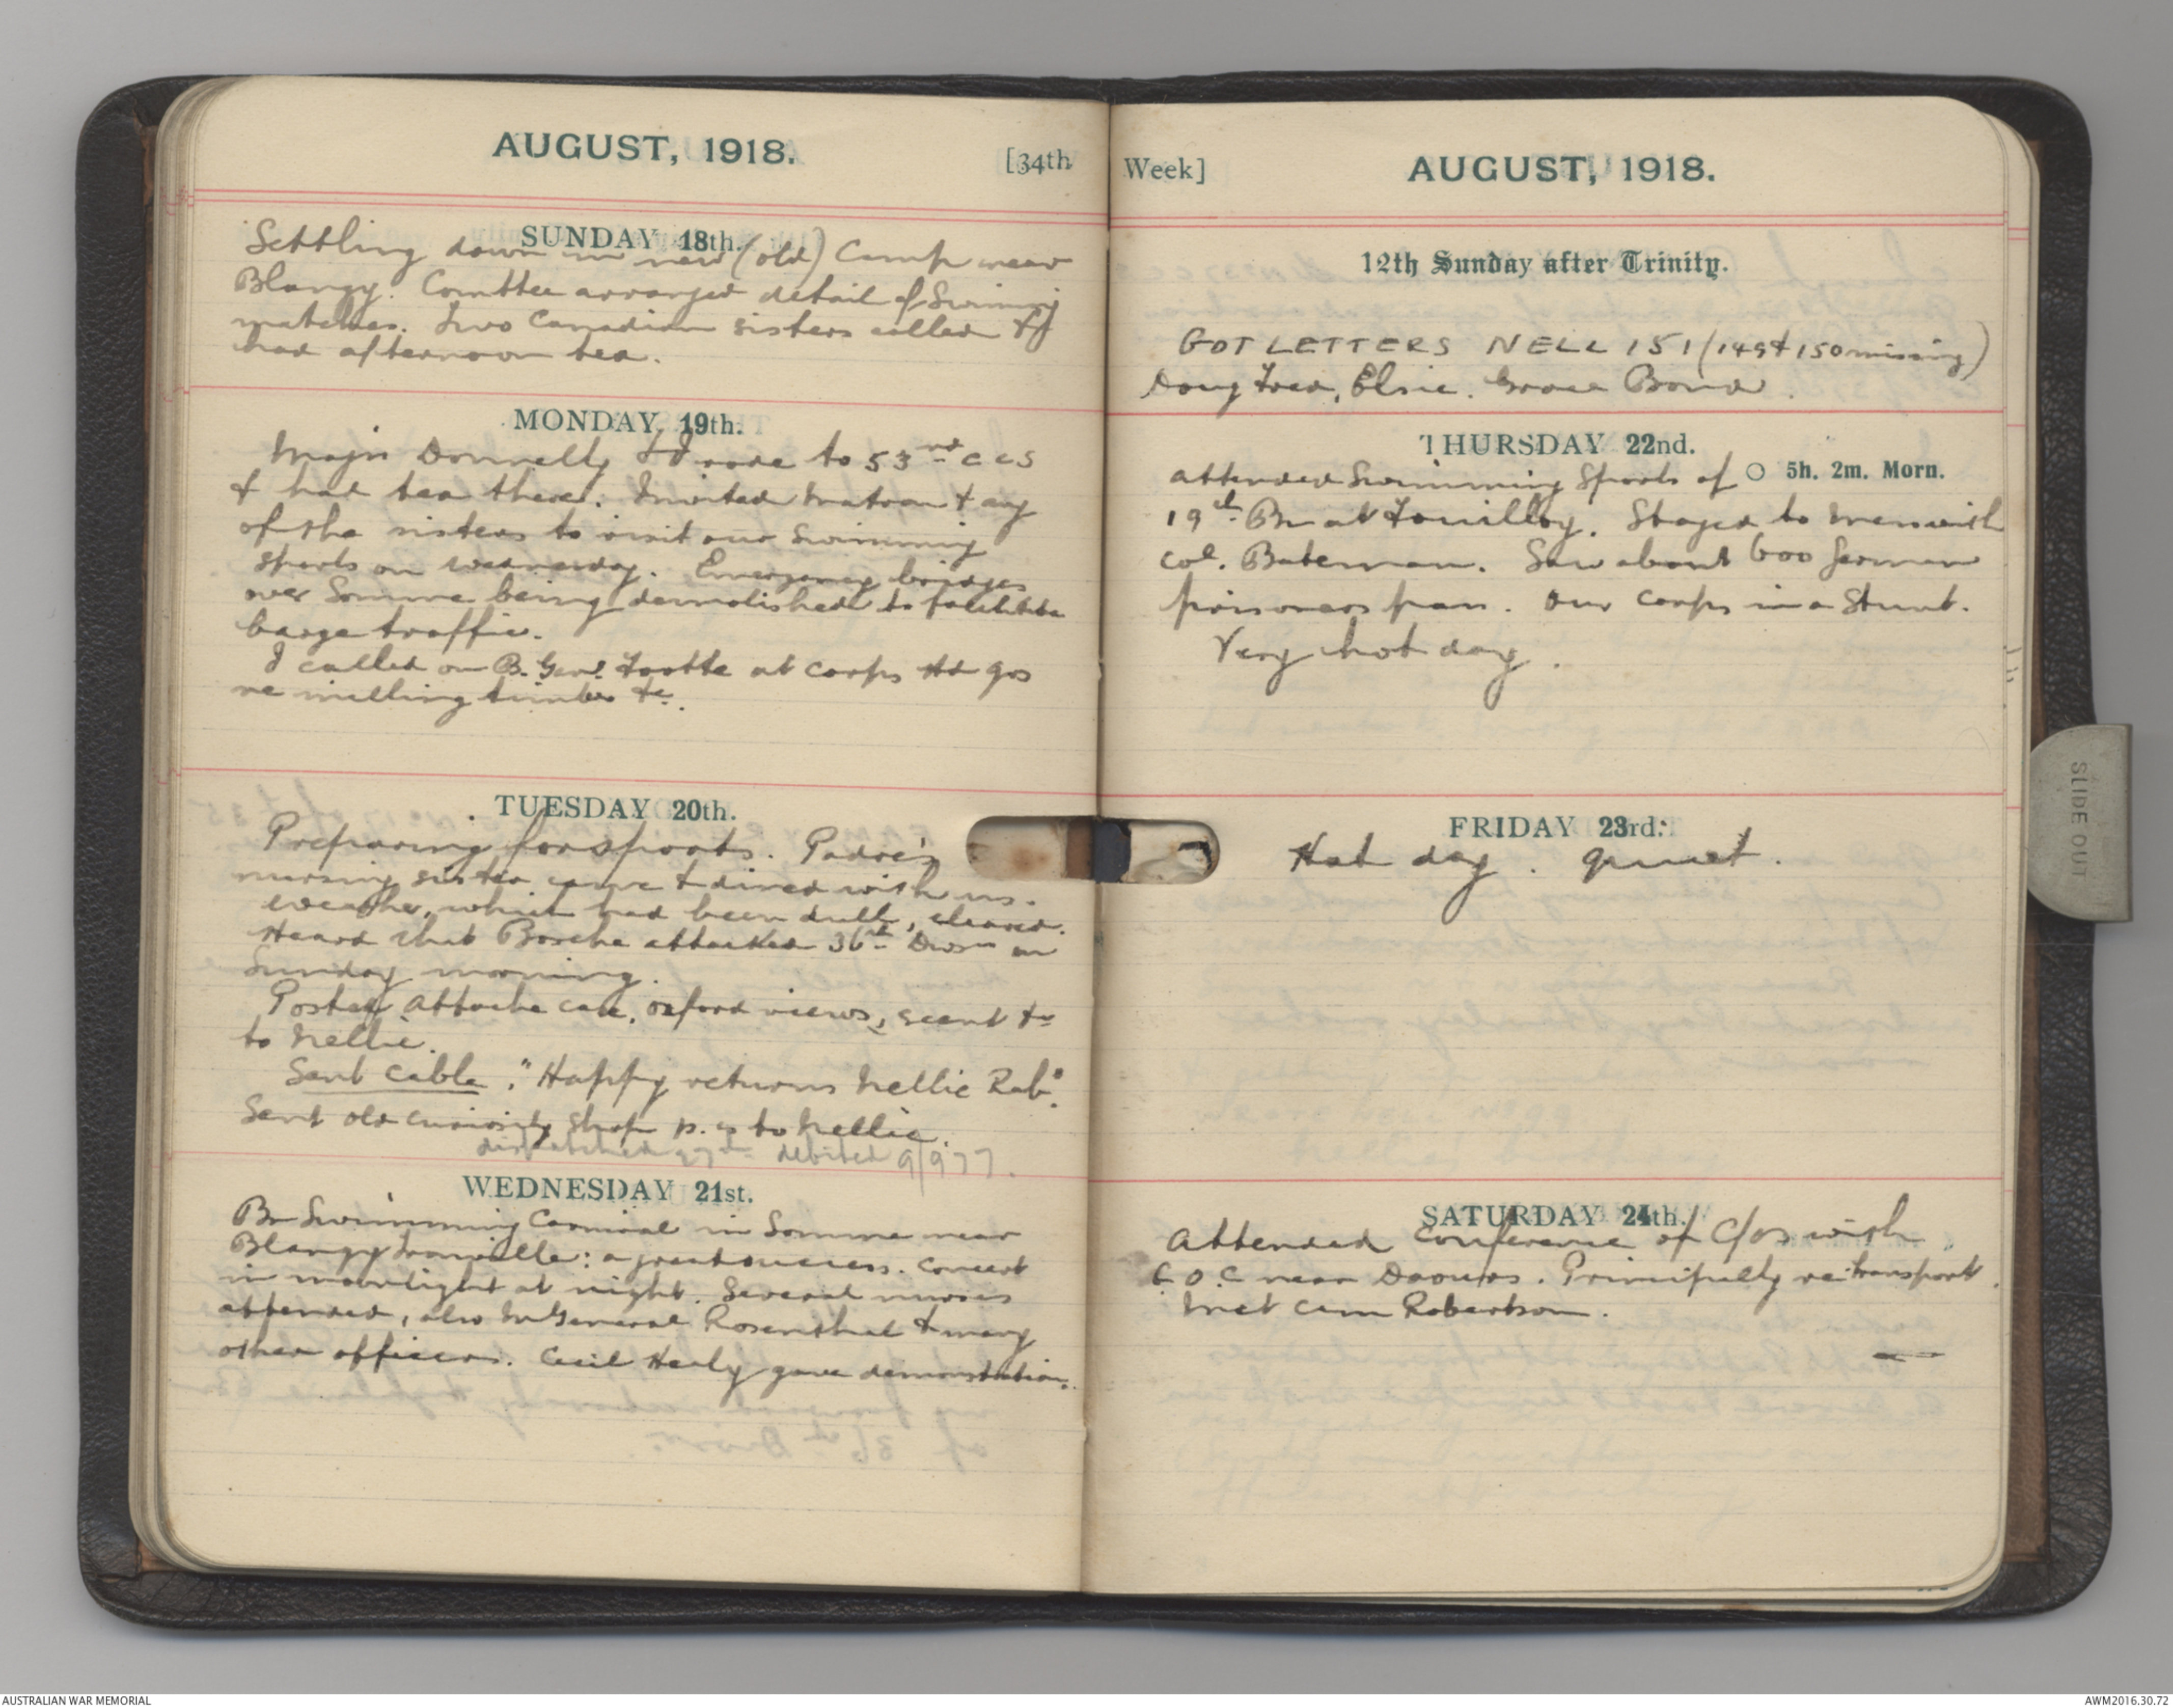 AUGUST, 1918. [34th
SUNDAY 18th.
Settling down in new (old) Camp near
Blangy. Comttee arranged detail of Swimmg
matches. Two Canadian sisters called &
had afternoon tea.
MONDAY 19th.
Major Donnelly & I rode to 53rd CCS
& had tea there. Invited Matron & any
of the sisters to visit our Swimming
sports on Wednesday. Emergency bridges
over Somme being demolished to facilitate
barge traffic.
I called on B. Genl. Footte at Corps Hd qrs
re milling timber &c.
TUESDAY 20th.
Preparing for sports. Padre's
nursing sister came & dined with us.
Weather, which had been dull, cleared.
Heard that Bosche attacked 36th Divsn on
Sunday morning.
Posted Attache case, oxford views, scent &c
to Nellie.
Sent cable "Happy returns Nellie Rab".
Sent old curiosity shop p. cs to Nellie.
dispatched 27th debited 9/9
WEDNESDAY 21st.
Bn Swimming Carnival in Somme near
Blangy Tronville: a great success. Concert
in moonlight at night. Several nurses
attended, also General Rosenthal & many
other officers. Cecil Healy gave demonstration.
Week] AUGUST, 1918.
12th Sunday after Trinity.
GOT LETTERS NELL 151 (149 & 150 missing)
Doug Fred, Elsie. Grace Bond.
THURSDAY 22nd.
○ 5h. 2m. Morn.
Attended Swimming Sports of
19th Bn at Fouilloy. Stayed to mess with
Col. Bateman. Saw about 600 German
prisoners pass. Our Corps in a Stunt.
Very hot day.
FRIDAY 23rd.
Hot day. quiet.
SATURDAY 24th.
Attended conference of C/Os with
G.O.C near Daours. Principally re transport.
Met Cam Robertson.
SLIDE OUT
AUSTRALIAN WAR MEMORIAL
AWM2016.30.72